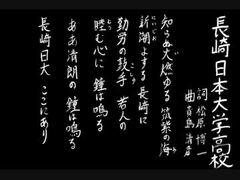 長崎日本大学高校
詞 松原博一
曲 貴島清彦
知らぬ火燃ゆる 筑紫の海
新潮よする 長崎に
勤労の鼓手 若人の
睦む心に 鐘は鳴る
ああ清朗の 鐘は鳴る
長崎日大 ここにあり